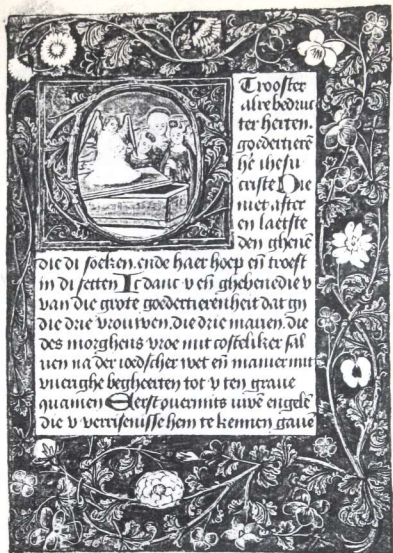 Trooster
alre bedruc
ter herten.
goedertierē
he ihesu
criste Die
niet after
en laetste
den ghenē
die di soeken. ende haer hoep eñ troest
in di setten Ic danc v eñ ghebenedie v
van die grote goedertierenheit dat gij
die drie vrouwen. die drie marien. die
des morghens vroe mit costeliker sal
uen na der ioedscher wet eñ manier mit
vuerighe begheerten tot v ten graue
quamen Eerst ouermits uwē engelē
die v verrisenisse hem te kennen gauē